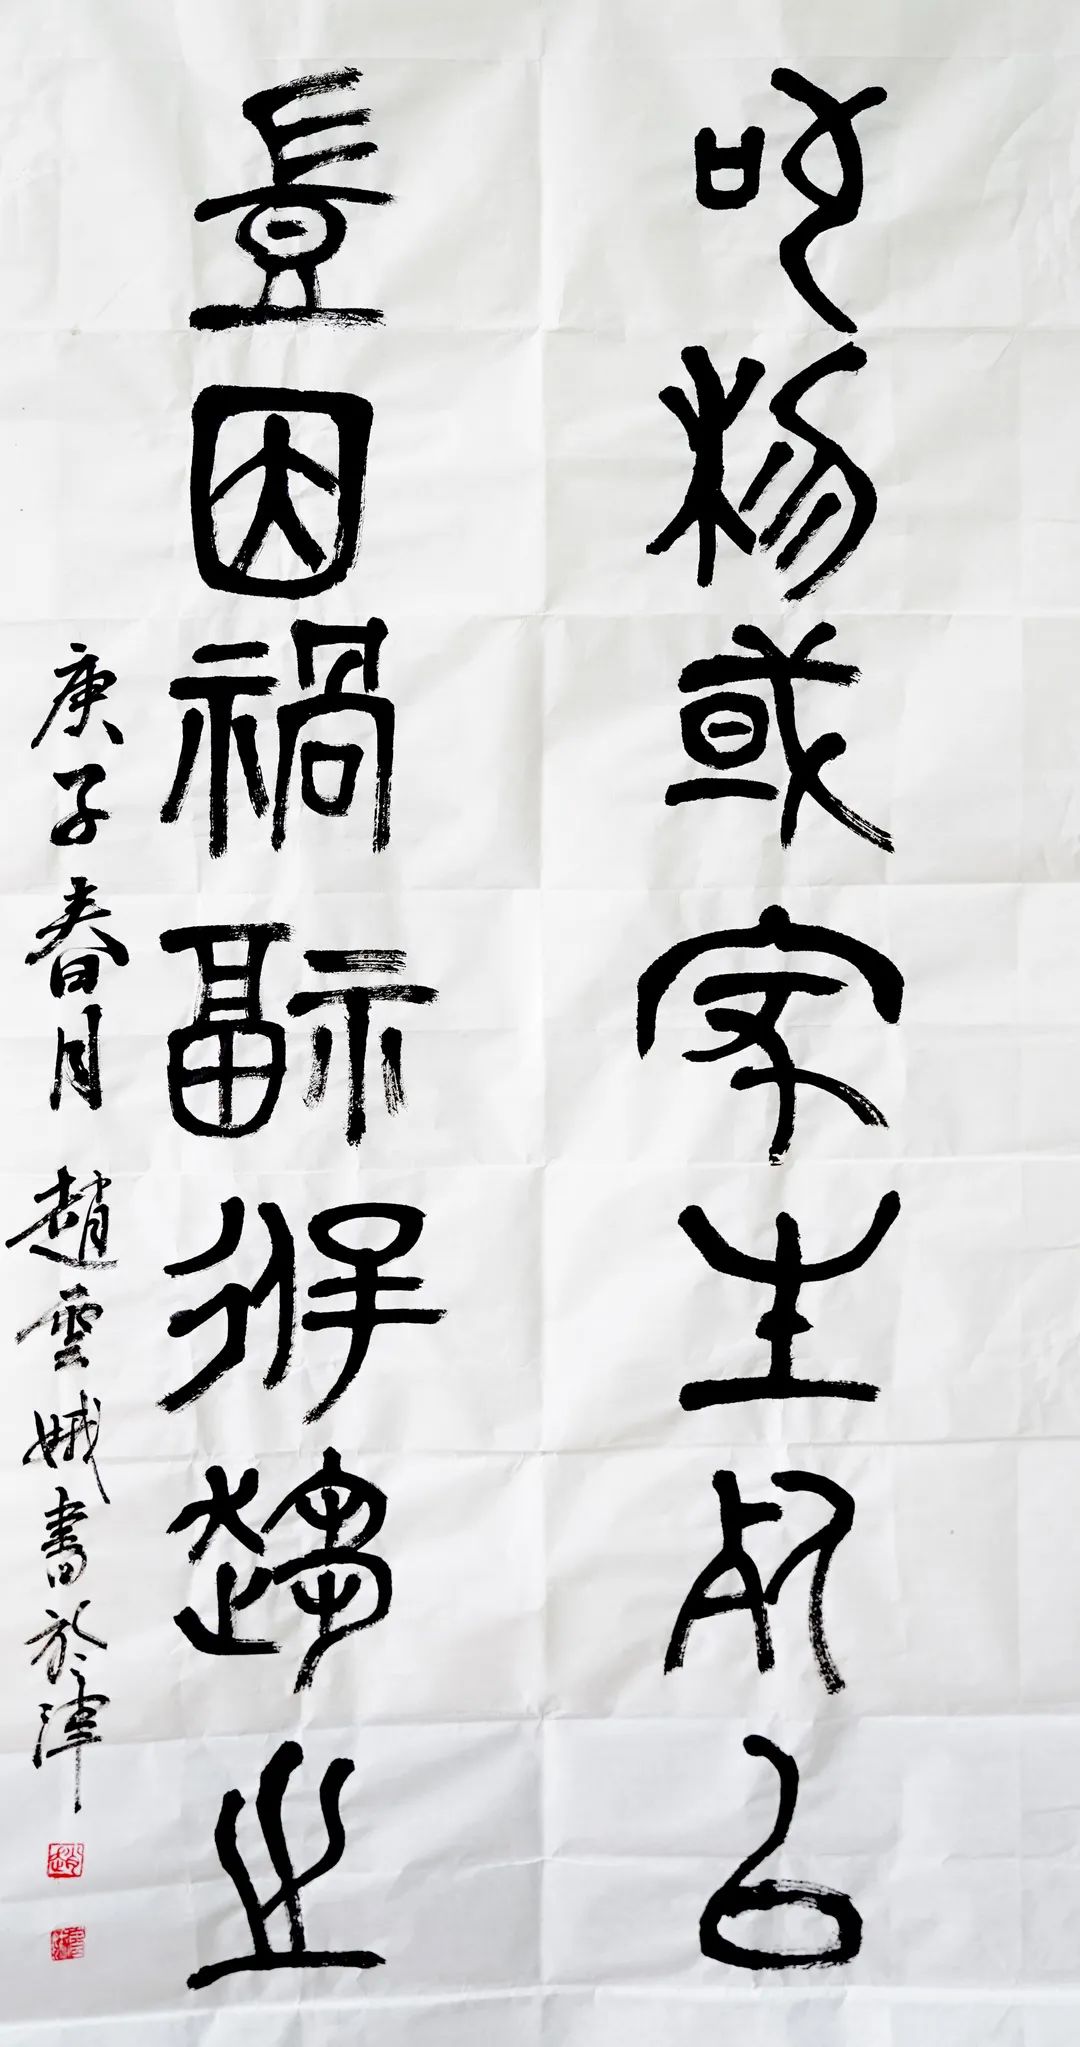 苟利國家生死以
豈因禍福避趨之
庚子春月趙雲娥書於津